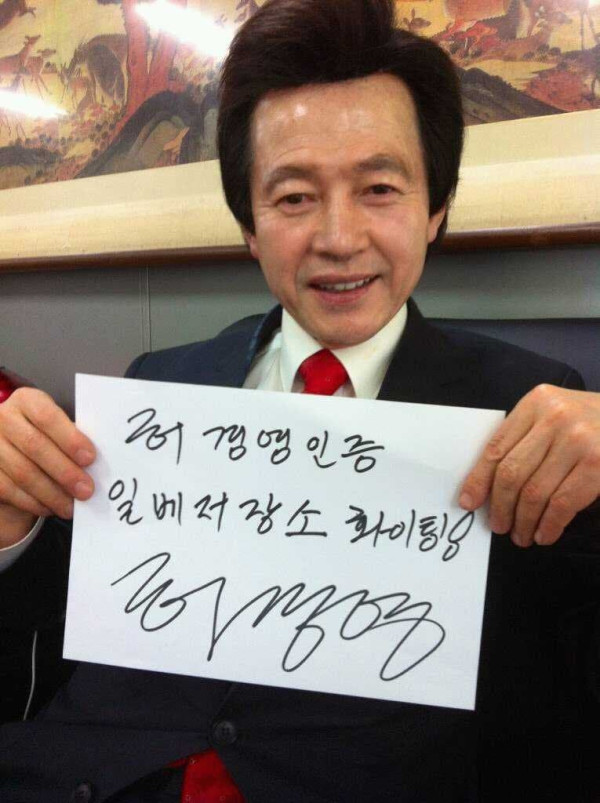 허경영인증
일베저장소 화이팅
허경영